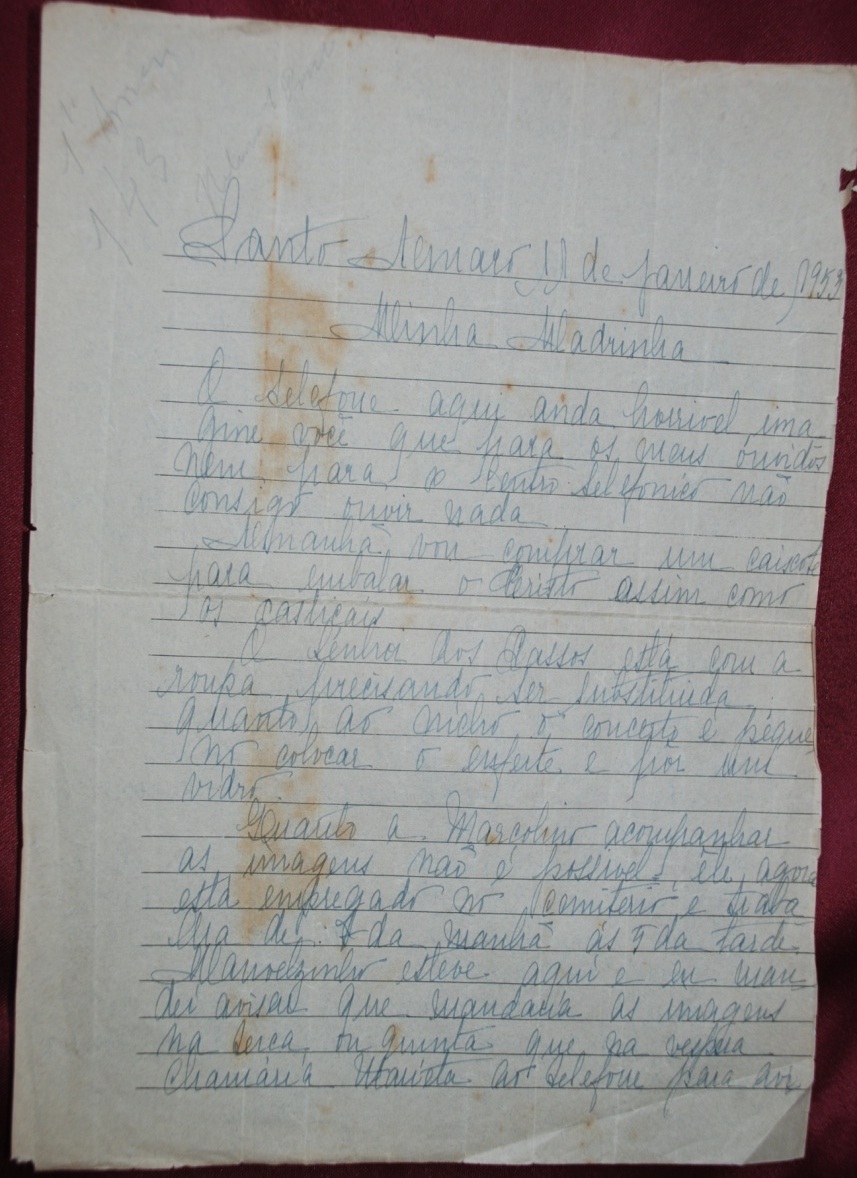 143
Santo Amaro, 11 de janeiro de 1953
Minha Madrinha
O telefone aqui anda horrivel ima
gine você que para os meus ouvidos
nem para o Centro telefonico não
consigo ouvir nada
Amanhã, vou comprar um caixote
para embalar o Cristo assim como
os castiçais
O Senhor dos Passos está com a
roupa precisando ser substituida
quanto ao nicho o concerto é peque
no colocar o enfeite e pôr um
vidro
Quanto a Marcolino acompanhar
as imagens não é possivel, êle agora
está empregado no cemiterio e traba
lha de 7 da manhã ás 5 da tarde.
Manoelzinho esteve aqui e eu man
dei avisar que mandaria as imagens
na terça ou quinta que na vespera
chamaria Marieta ao telefone para avi